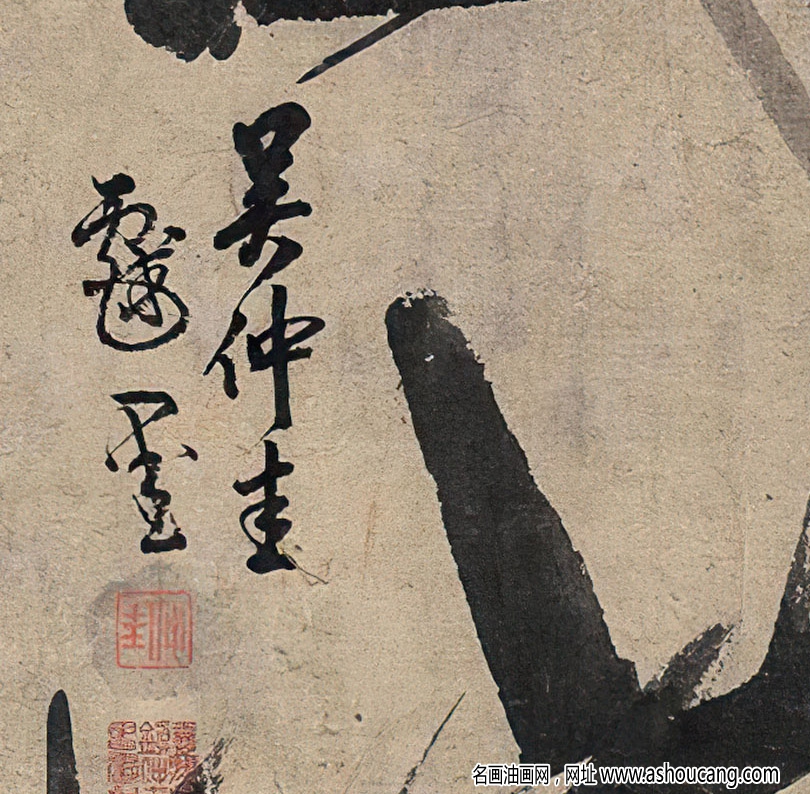 吳仲圭
戲墨
仲圭
名画油画网，网址 www.ashoucang.com